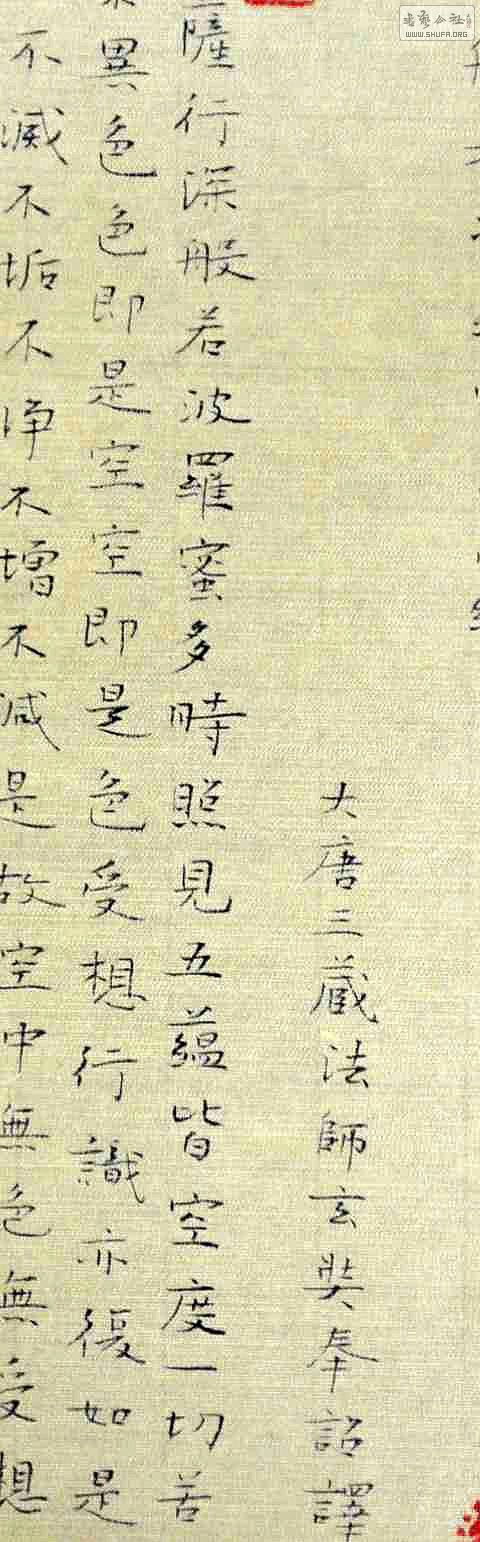 大唐三蔵法師玄奘奉詔譯
薩行深般若波羅蜜多時照見五蘊皆空度一切苦
異色色即是空空即是色受想行識亦復如是
不滅不垢不淨不增不減是故空中無色無受想
書藝公社
WWW.SHUFA.ORG